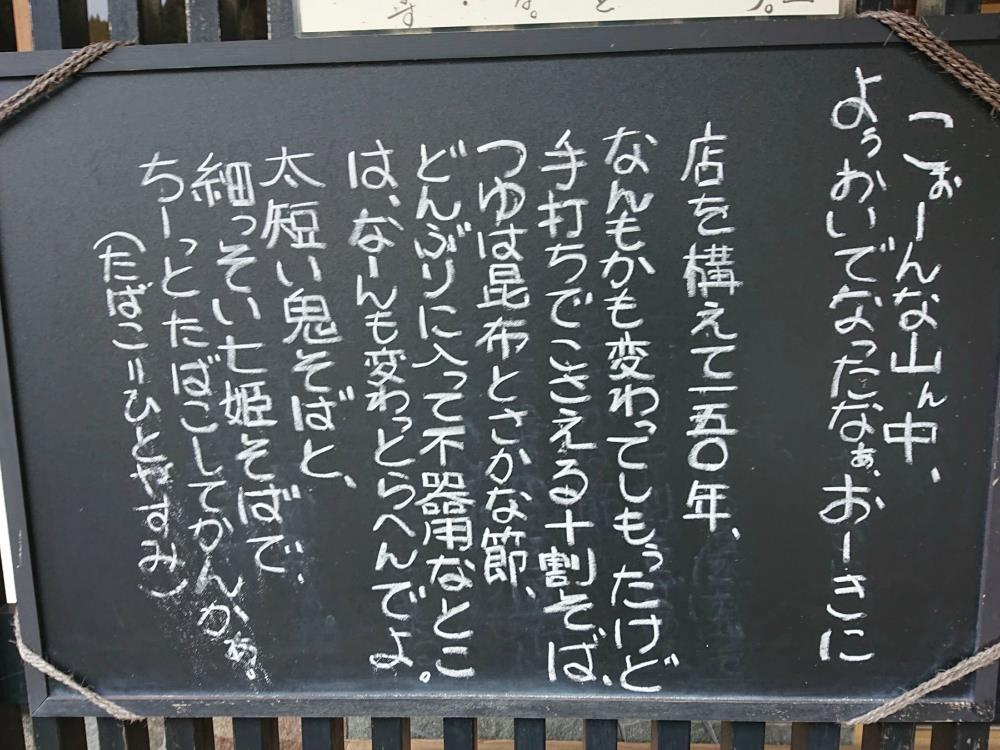 こぉーんな山ん中、
よぅおいでなったなぁ、おーきに
店を構えて一五〇年、
なんもかも変わってしもぅたけど
手打ちでこさえる十割そば、
つゆは昆布とさかな節、
どんぶりに入って不器用なとこ
は、なーんも変わっとらへんでよ。
太短い鬼そばと、
細っそい七姫そばで、
ちーっとたばこしてかんかぁ。
(たばこ＝ひとやすみ)